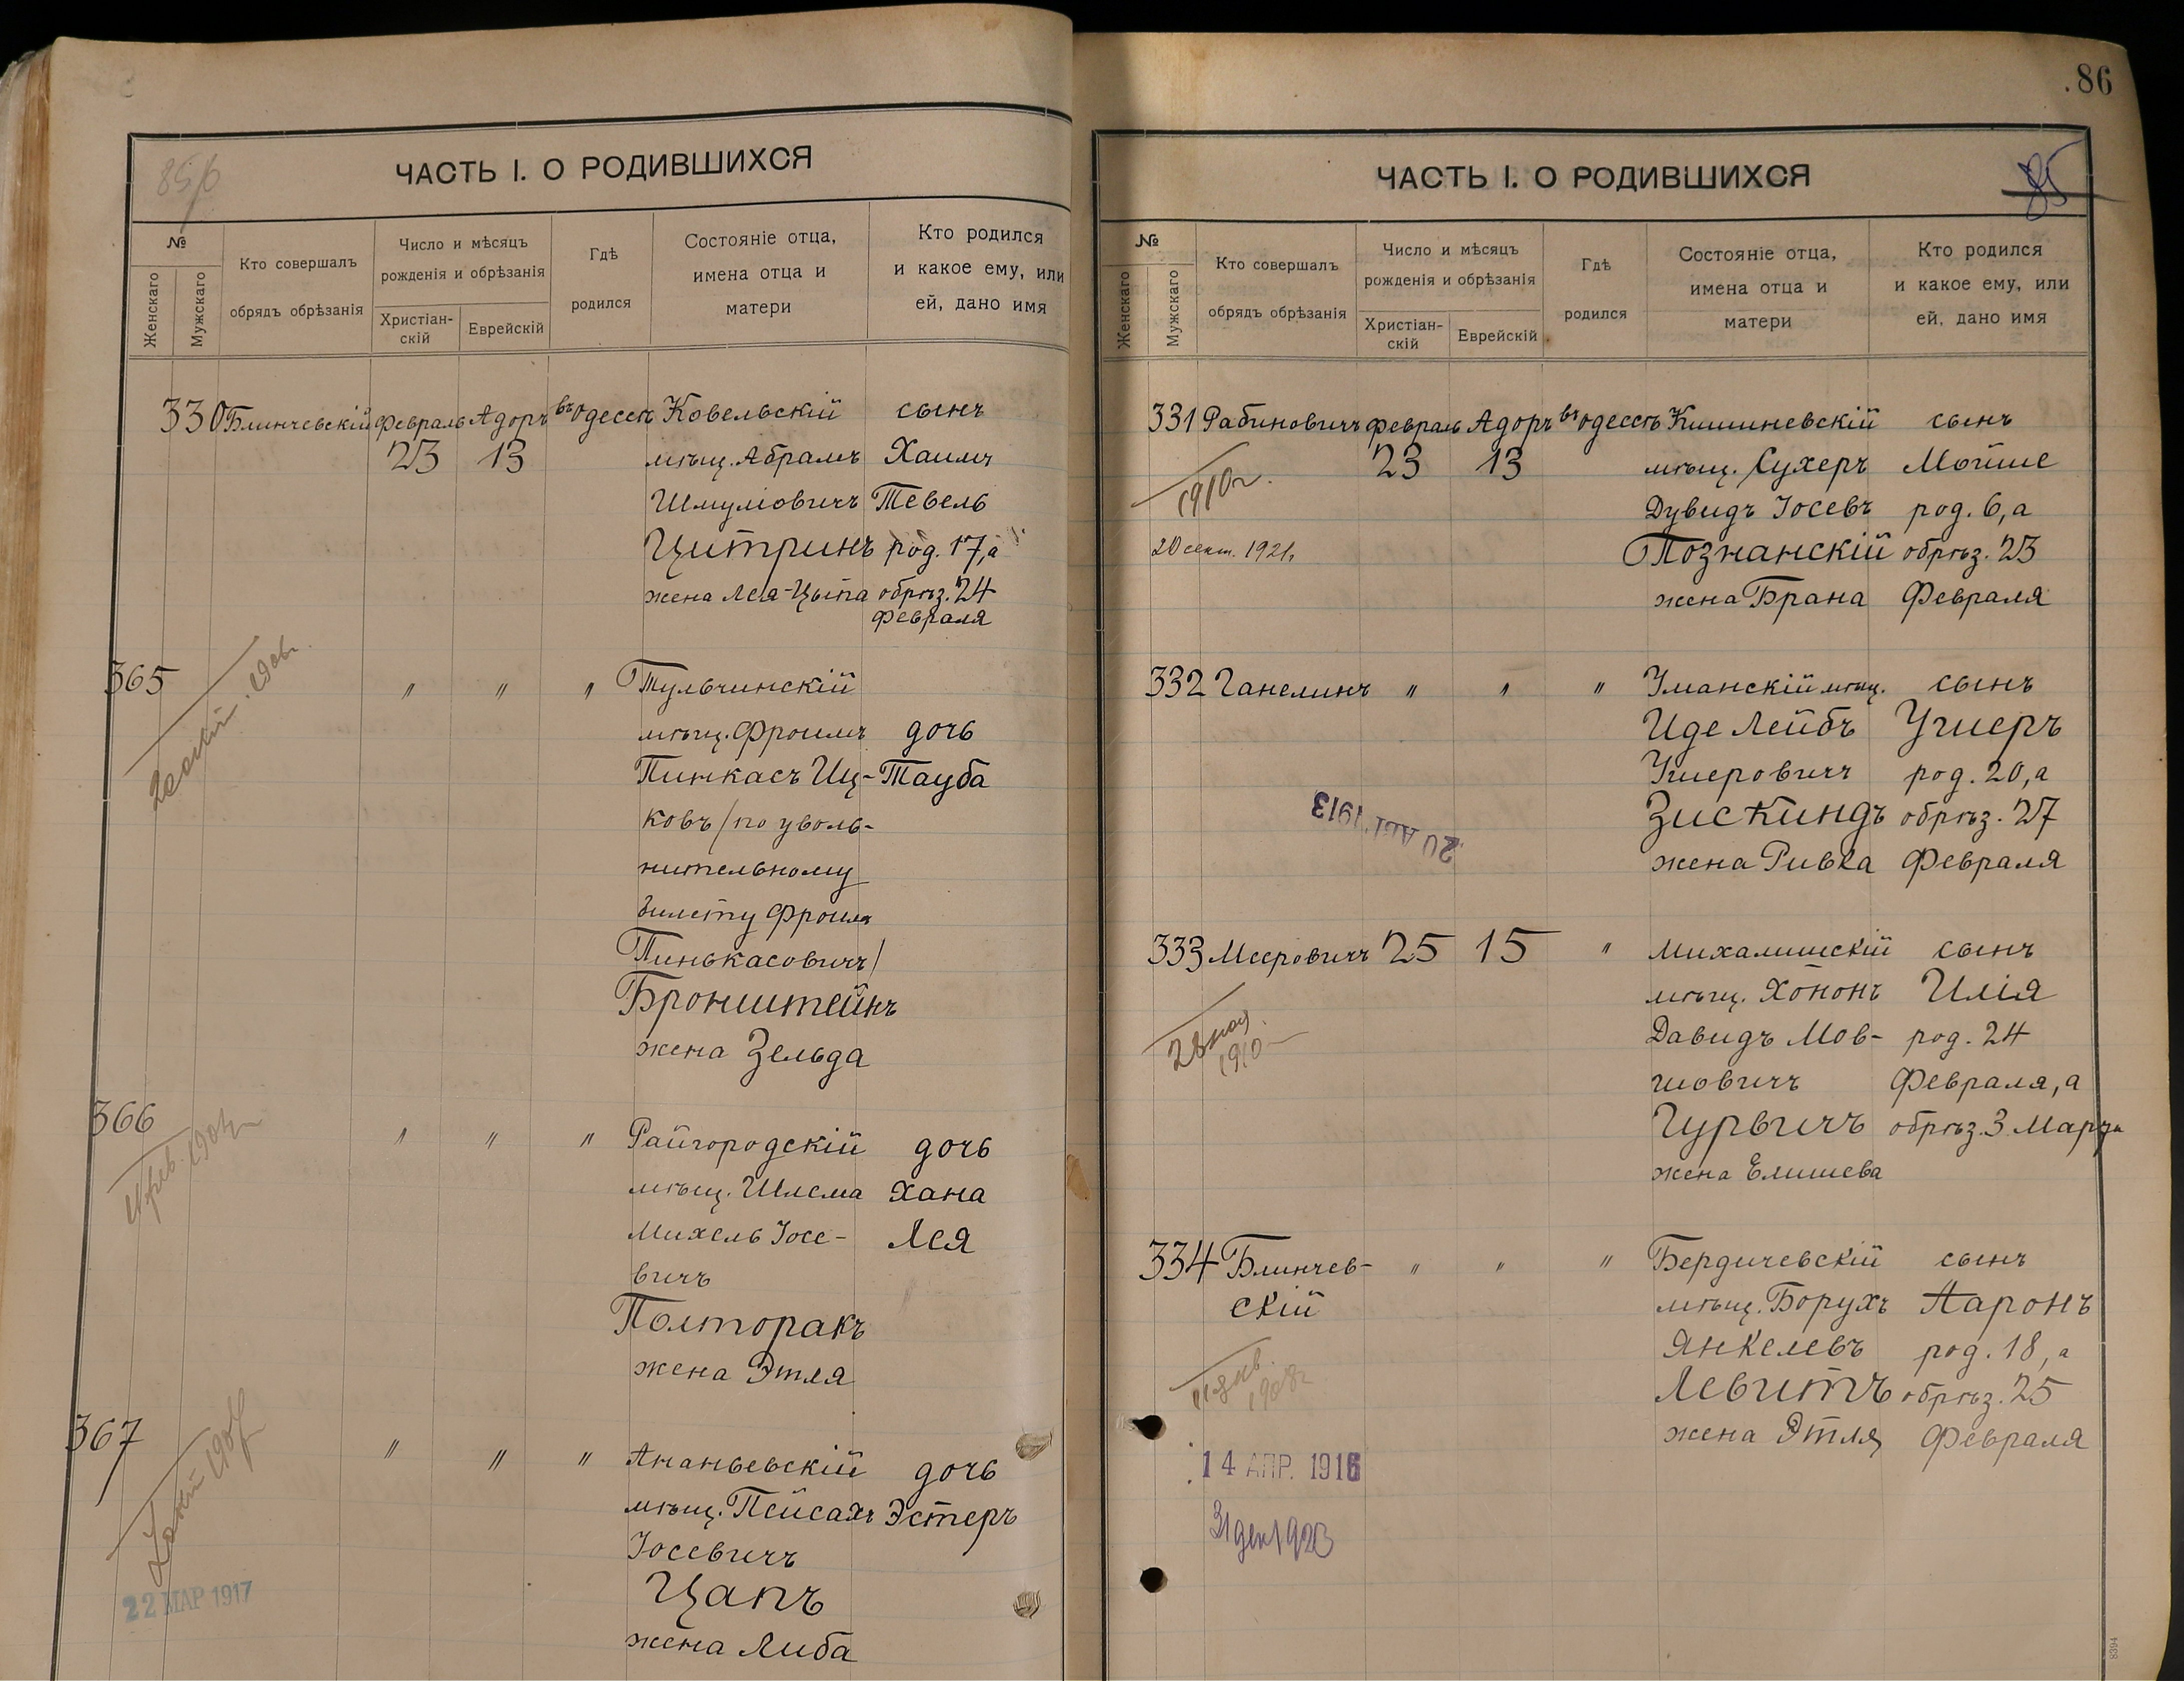 85/б
ЧАСТЬ I. О РОДИВШИХСЯ
№
Женскаго
Мужскаго
Кто совершалъ
обрядъ обрѣзанія
Число и мѣсяцъ
рожденія и обрѣзанія
Христіан-
скій
Еврейскій
Гдѣ
родился
Состояніе отца,
имена отца и
матери
Кто родился
и какое ему, или
ей, дано имя
330 Блинчевскій Февраль Адоръ въ Одессѣ Ковельскій сынъ
23 13 мѣщ. Абрамъ Хаимъ
Шмуліовичъ Тевель
Цитринъ род. 17, а
жена Лея-Цыпа обрѣз. 24
Февраля
365 " " " Тульчинскій
мѣщ. Фроимъ дочь
Пинкасъ Иц- Тауба
ковъ /по уволь-
нительному
билету Фроим
Пинькасовичъ/
Бронштейнъ
жена Зельда
366 " " " Райгородскій дочь
мѣщ. Шлема Хана
Михель Іосе- Лея
вичъ
Полторакъ
жена Этля
367 " " " Ананьевскій дочь
мѣщ. Пейсахъ Эстеръ
Іосевичъ
Цапъ
22 МАР 1917
жена Либа
86
ЧАСТЬ I. О РОДИВШИХСЯ
85
№
Женскаго
Мужскаго
Кто совершалъ
обрядъ обрѣзанія
Число и мѣсяцъ
рожденія и обрѣзанія
Христіан-
скій
Еврейскій
Гдѣ
родился
Состояніе отца,
имена отца и
матери
Кто родился
и какое ему, или
ей, дано имя
331 Рабиновичъ Февраль Адоръ въ Одессѣ Кишиневскій сынъ
23 13 мѣщ. Сухеръ Мойше
1910г. Дувидъ Іосевъ род. 6, а
20 сент. 1921г. Познанскій обрѣз. 23
жена Брана Февраля
332 Ганелинъ " " " Уманскій мѣщ. сынъ
Иде Лейбъ Ушеръ
Ушеровичъ род. 20, а
20 АВГ. 1913 Зискиндъ обрѣз. 27
жена Ривка Февраля
333 Мееровичъ 25 15 " Михалишскій сынъ
мѣщ. Хононъ Илія
28 ноя. 1910 Давидъ Мов- род. 24
шовичъ Февраля, а
Гурвичъ обрѣз. 3 Марта
жена Елишева
334 Блинчев- " " " Бердичевскій сынъ
скій мѣщ. Борухъ Ааронъ
Янкелевъ род. 18, а
1908г. Левитъ обрѣз. 25
жена Этля Февраля
14 АПР. 1916
31 дек 1923
8394